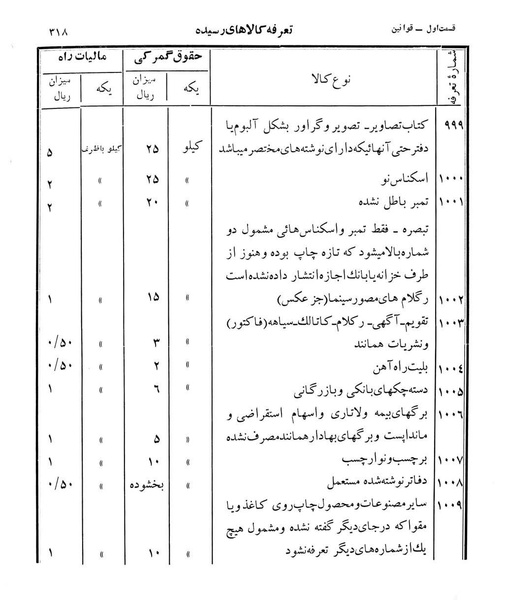 قسمت اول ــ قوانین
تعرفه کالاهای رسیده
۳۱۸
شمارهٔ تعرفه
نوع کالا
حقوق گمرکی
مالیات راه
یکه
میزان ریال
یکه
میزان ریال
۹۹۹ کتاب تصاویر ـ تصویر و گراور بشکل آلبوم یا
دفتر حتی آنهائیکه دارای نوشته‌های مختصر میباشد کیلو ۲۵ کیلو باظرف ۵
۱۰۰۰ اسکناس نو » ۲۵ » ۲
۱۰۰۱ تمبر باطل نشده » ۲۰ » ۲
تبصره ـ فقط تمبر و اسکناس هائی مشمول دو
شماره بالا میشود که تازه چاپ بوده و هنوز از
طرف خزانه یا بانك اجازه انتشار داده نشده است
۱۰۰۲ رگلام های مصور سینما (جز عکس) » ۱۵ » ۱
۱۰۰۳ تقویم ـ آگهی ـ رکلام ـ کاتالك ـ سیاهه (فاکتور)
و نشریات همانند » ۳ » ۰/۵۰
۱۰۰۴ بلیت راه آهن » ۲ » ۰/۵۰
۱۰۰۵ دسته چکهای بانکی و بازرگانی » ۶ » ۱
۱۰۰۶ برگهای بیمه ولاتاری واسهام استقراضی و
مانداپست و برگهای بهادار همانند مصرف نشده » ۵ » ۱
۱۰۰۷ برچسب و نوار چسب » ۱۰ » ۱
۱۰۰۸ دفاتر نوشته شده مستعمل » بخشوده » ۰/۵۰
۱۰۰۹ سایر مصنوعات و محصول چاپ روی کاغذ و یا
مقوا که در جای دیگر گفته نشده و مشمول هیچ
یك از شماره‌های دیگر تعرفه نشود » ۱۰ » ۱